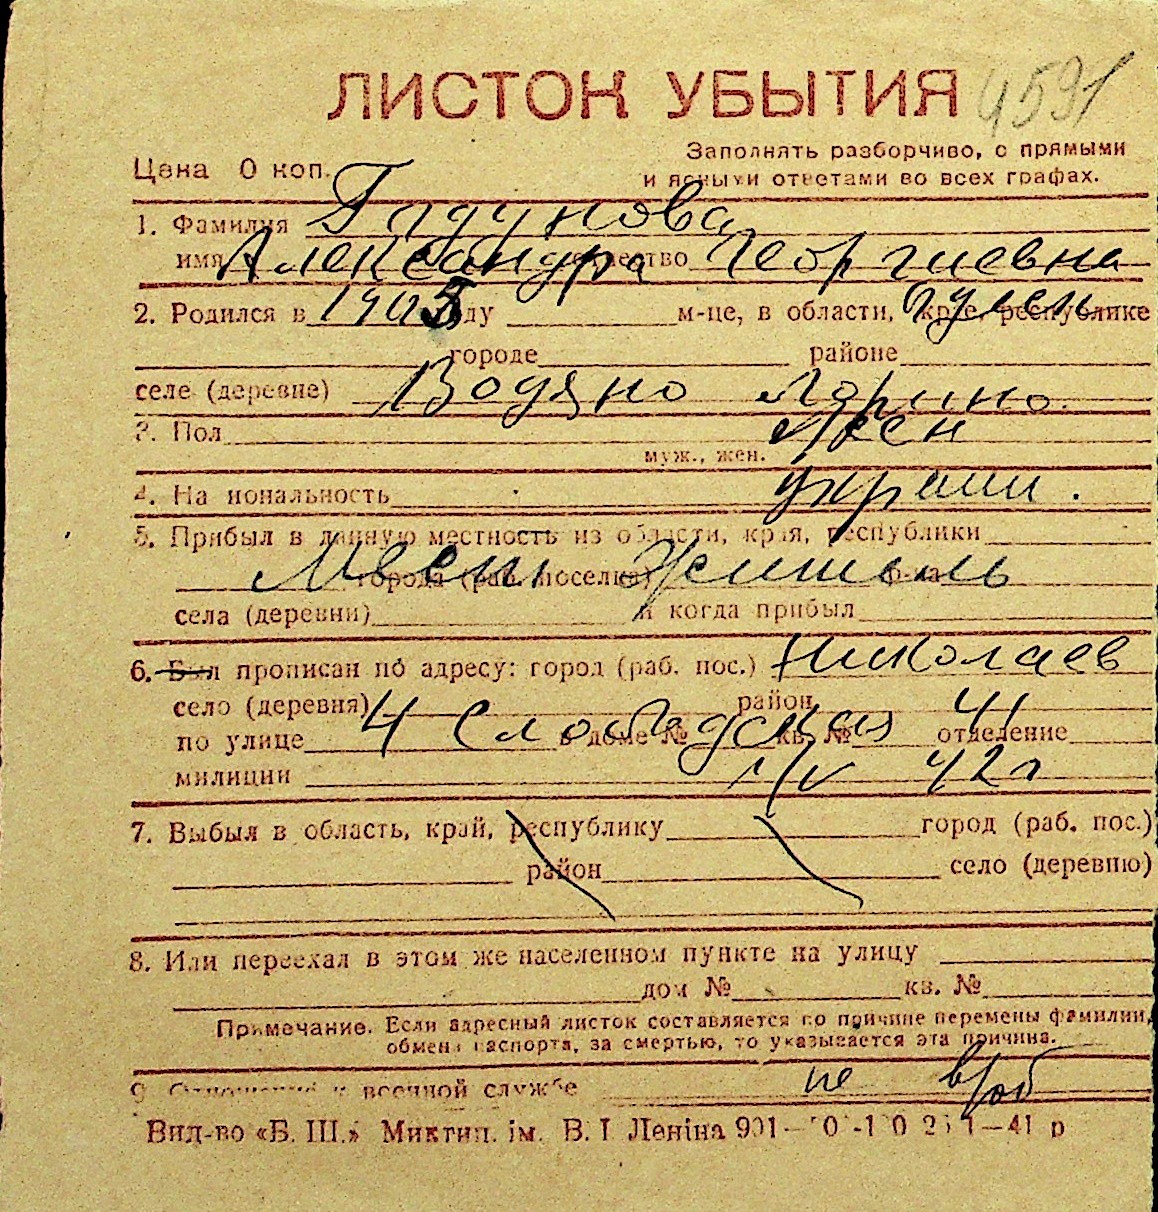 ЛИСТОК УБЫТИЯ 4591
Заполнять разборчиво, с прямыми
Цена 0 коп.
и ясными ответами во всех графах.
1. Фамилия Гадунова
имя Александра отчество Георгиевна
2. Родился в 1905 году м-це, в области, крае, республике
городе районе
селе (деревне) Водяно Лорино.
3. Пол жен
муж., жен.
4. Национальность украин.
5. Прибыл в данную местность из области, края, республики
Местн житель города (раб. поселка) р-на
села (деревни) и когда прибыл
6. Был прописан по адресу: город (раб. пос.) Николаев
село (деревня) район
по улице 4 Слободская 41 в доме № кв. № отделение
милиции 1/V 42г
7. Выбыл в область, край, республику город (раб. пос.)
район село (деревню)
8. Или переехал в этом же населенном пункте на улицу
дом № кв. №
Примечание. Если адресный листок составляется по причине перемены фамилии,
обмена паспорта, за смертью, то указывается эта причина.
9. Отношение к военной службе не в/об
Вид-во «Б. Ш.» Миктип. ім. В. І Леніна